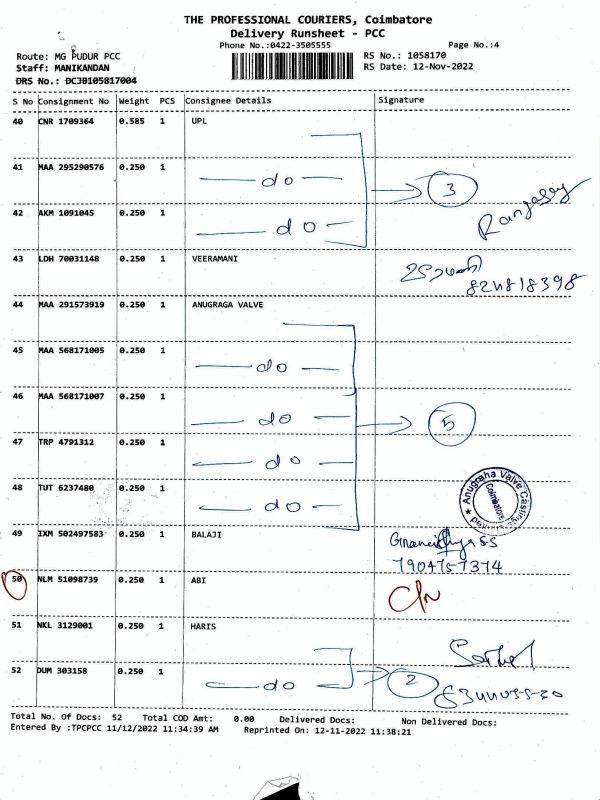 THE PROFESSIONAL COURIERS, Coimbatore
Delivery Runsheet - PCC
Phone No.:0422-3505555 Page No.:4
Route: MG PUDUR PCC RS No.: 1058170
Staff: MANIKANDAN RS Date: 12-Nov-2022
DRS No.: DCJ0105817004
S No Consignment No Weight PCS Consignee Details Signature
40 CNR 1709364 0.585 1 UPL
41 MAA 295290576 0.250 1 do 3
42 AKM 1091045 0.250 1 do
43 LDH 70031148 0.250 1 VEERAMANI
44 MAA 291573919 0.250 1 ANUGRAGA VALVE
45 MAA 568171005 0.250 1 do
46 MAA 568171007 0.250 1 do 5
47 TRP 4791312 0.250 1 do
48 TUT 6237480 0.250 1 do
Anugraha Valve Castings
Coimbatore
49 IXM 502497583 0.250 1 BALAJI
7904757374
50 NLM 51098739 0.250 1 ABI
51 NKL 3129001 0.250 1 HARIS
52 DUM 303158 0.250 1 do 2
Total No. Of Docs: 52 Total COD Amt: 0.00 Delivered Docs: Non Delivered Docs:
Entered By :TPCPCC 11/12/2022 11:34:39 AM Reprinted On: 12-11-2022 11:38:21